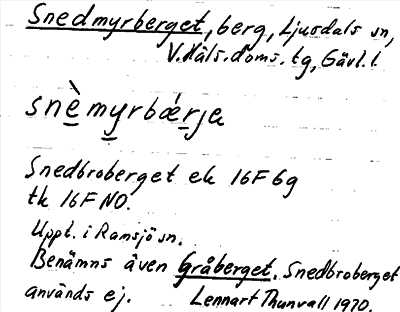 Snedmyrberget, berg, Ljusdals sn,
V. Häls. doms. tg, Gävl. l.
snè myrbǽrja
Snedbroberget ek 16F6g
tk 16F NO.
Uppt. i Ramsjö sn.
Benämns även Gråberget. Snedbroberget
används ej. Lennart Thunvall 1970.